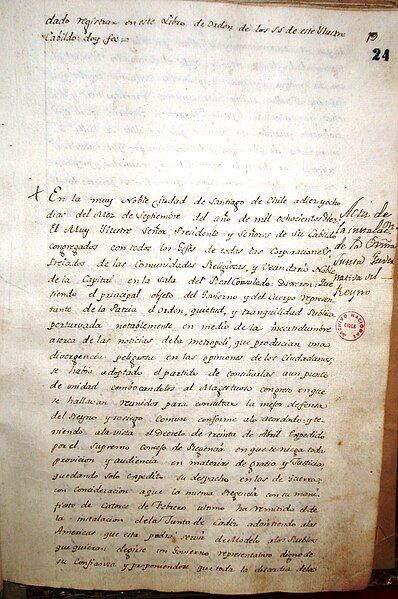 dado registrar en este Libro de Orden de los SS de este Ilustre
Cabildo: doy fee =
19
24
+ En la muy Noble ciudad de Santiago de Chile a diez y ocho
dias del Mes de Septiembre del año de mil ochocientos diez
El Muy Illustre Señor Presidente y Señores de su Cabildo
congregados con todos los Gefes de todas las Corporaciones
Prelados de las Comunidades Religiosas, y Vecindario Noble
de la Capital en la sala del Real Consulado: Dixeron: que
siendo el principal objeto del Govierno y del Cuerpo represen
tante de la Patria el orden, quietud, y tranquilidad Publica
perturvada notablemente en medio de la incertidumbre
acerca de las noticias de la metropoli, que producian una
divergencia peligrosa en las opiniones de los Ciudadanos
se havia adoptado el partido de conciliarlas a un punto
de unidad combocandolos al Magestuoso congreso en que
se hallavan reunidos para consultar la mejor defensa
del Reyno y sosiego Comun conforme a lo acordado: y te
niendo a la vista el Decreto de treinta de Abril Expedido
por el Supremo Consejo de Regencia en que se niega toda
provicion y audiencia en materias de gracia y Justicia
quedando solo expedito su despacho en las de Guerra:
con consideracion a que la misma Regencia con su mani
fiesto de Catorce de Febrero ultimo ha remitido el de
la instalacion de la Junta de Cadiz advirtiendo a las
Americas que esta podra servir de Modelo a los Pueblos
que quieran elegirse un Govierno representativo digno de
su Confianza y proponiendose que toda la discordia de la
Acta de
la instalac.on
de la
Junta Guber
nativa del
Reyno
ARCHIVO NACIONAL
CHILE